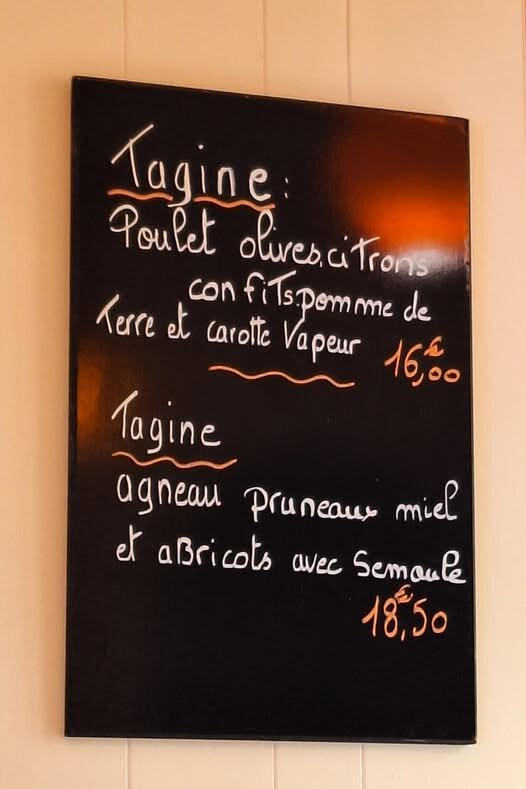 Tagine:
Poulet olives, citrons
confits. pomme de
Terre et carotte Vapeur
16,€00
Tagine
agneau pruneaux miel
et aBricots avec Semoule
18,€50